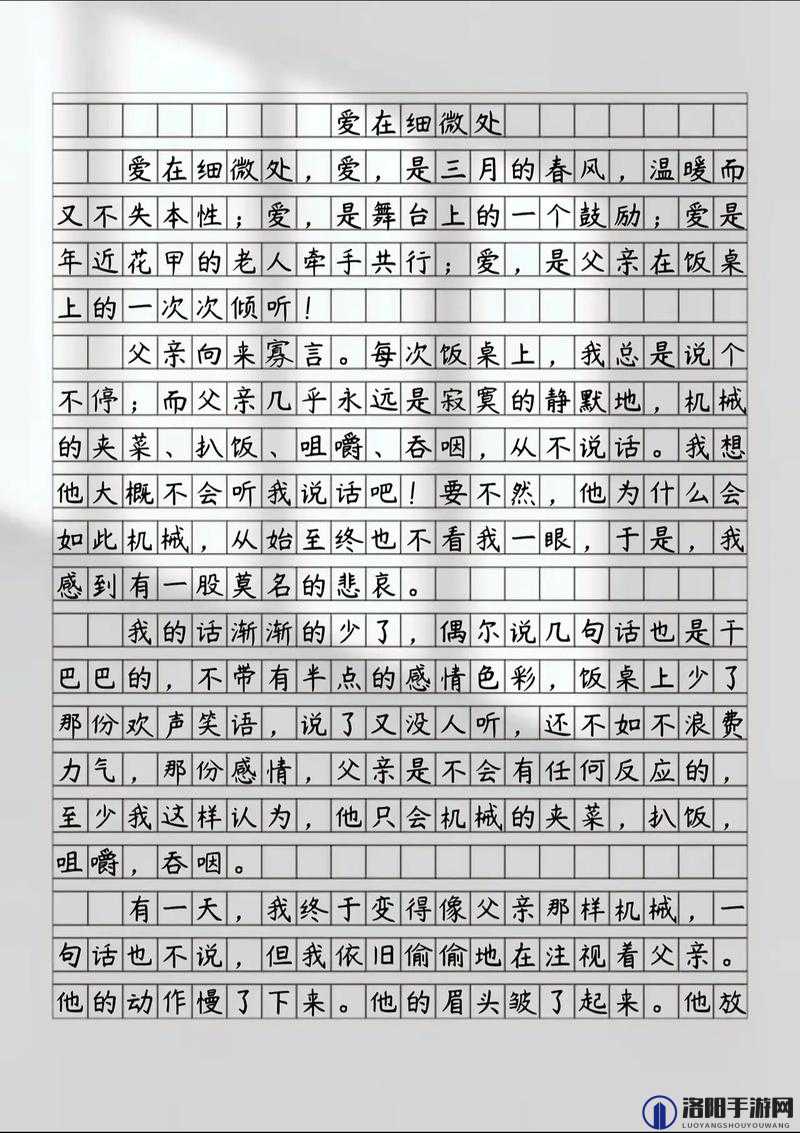 爱在细微处
爱在细微处，爱，是三月的春风，温暖而
又不失本性；爱，是舞台上的一个鼓励；爱是
年近花甲的老人牵手共行；爱，是父亲在饭桌
上的一次次倾听！
父亲向来寡言。每次饭桌上，我总是说个
不停；而父亲几乎永远是寂寞的静默地，机械
的夹菜、扒饭、咀嚼、吞咽，从不说话。我想
他大概不会听我说话吧！要不然，他为什么会
如此机械，从始至终也不看我一眼，于是，我
感到有一股莫名的悲哀。
我的话渐渐的少了，偶尔说几句话也是干
巴巴的，不带有半点的感情色彩，饭桌上少了
那份欢声笑语，说了又没人听，还不如不浪费
力气，那份感情，父亲是不会有任何反应的，
至少我这样认为，他只会机械的夹菜，扒饭，
咀嚼，吞咽。
有一天，我终于变得像父亲那样机械，一
句话也不说，但我依旧偷偷地在注视着父亲。
他的动作慢了下来。他的眉头皱了起来。他放
洛阳手游网
LUOYANGSHOUYOUWANG